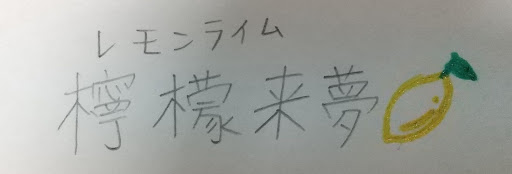 レモンライム
檸檬来夢